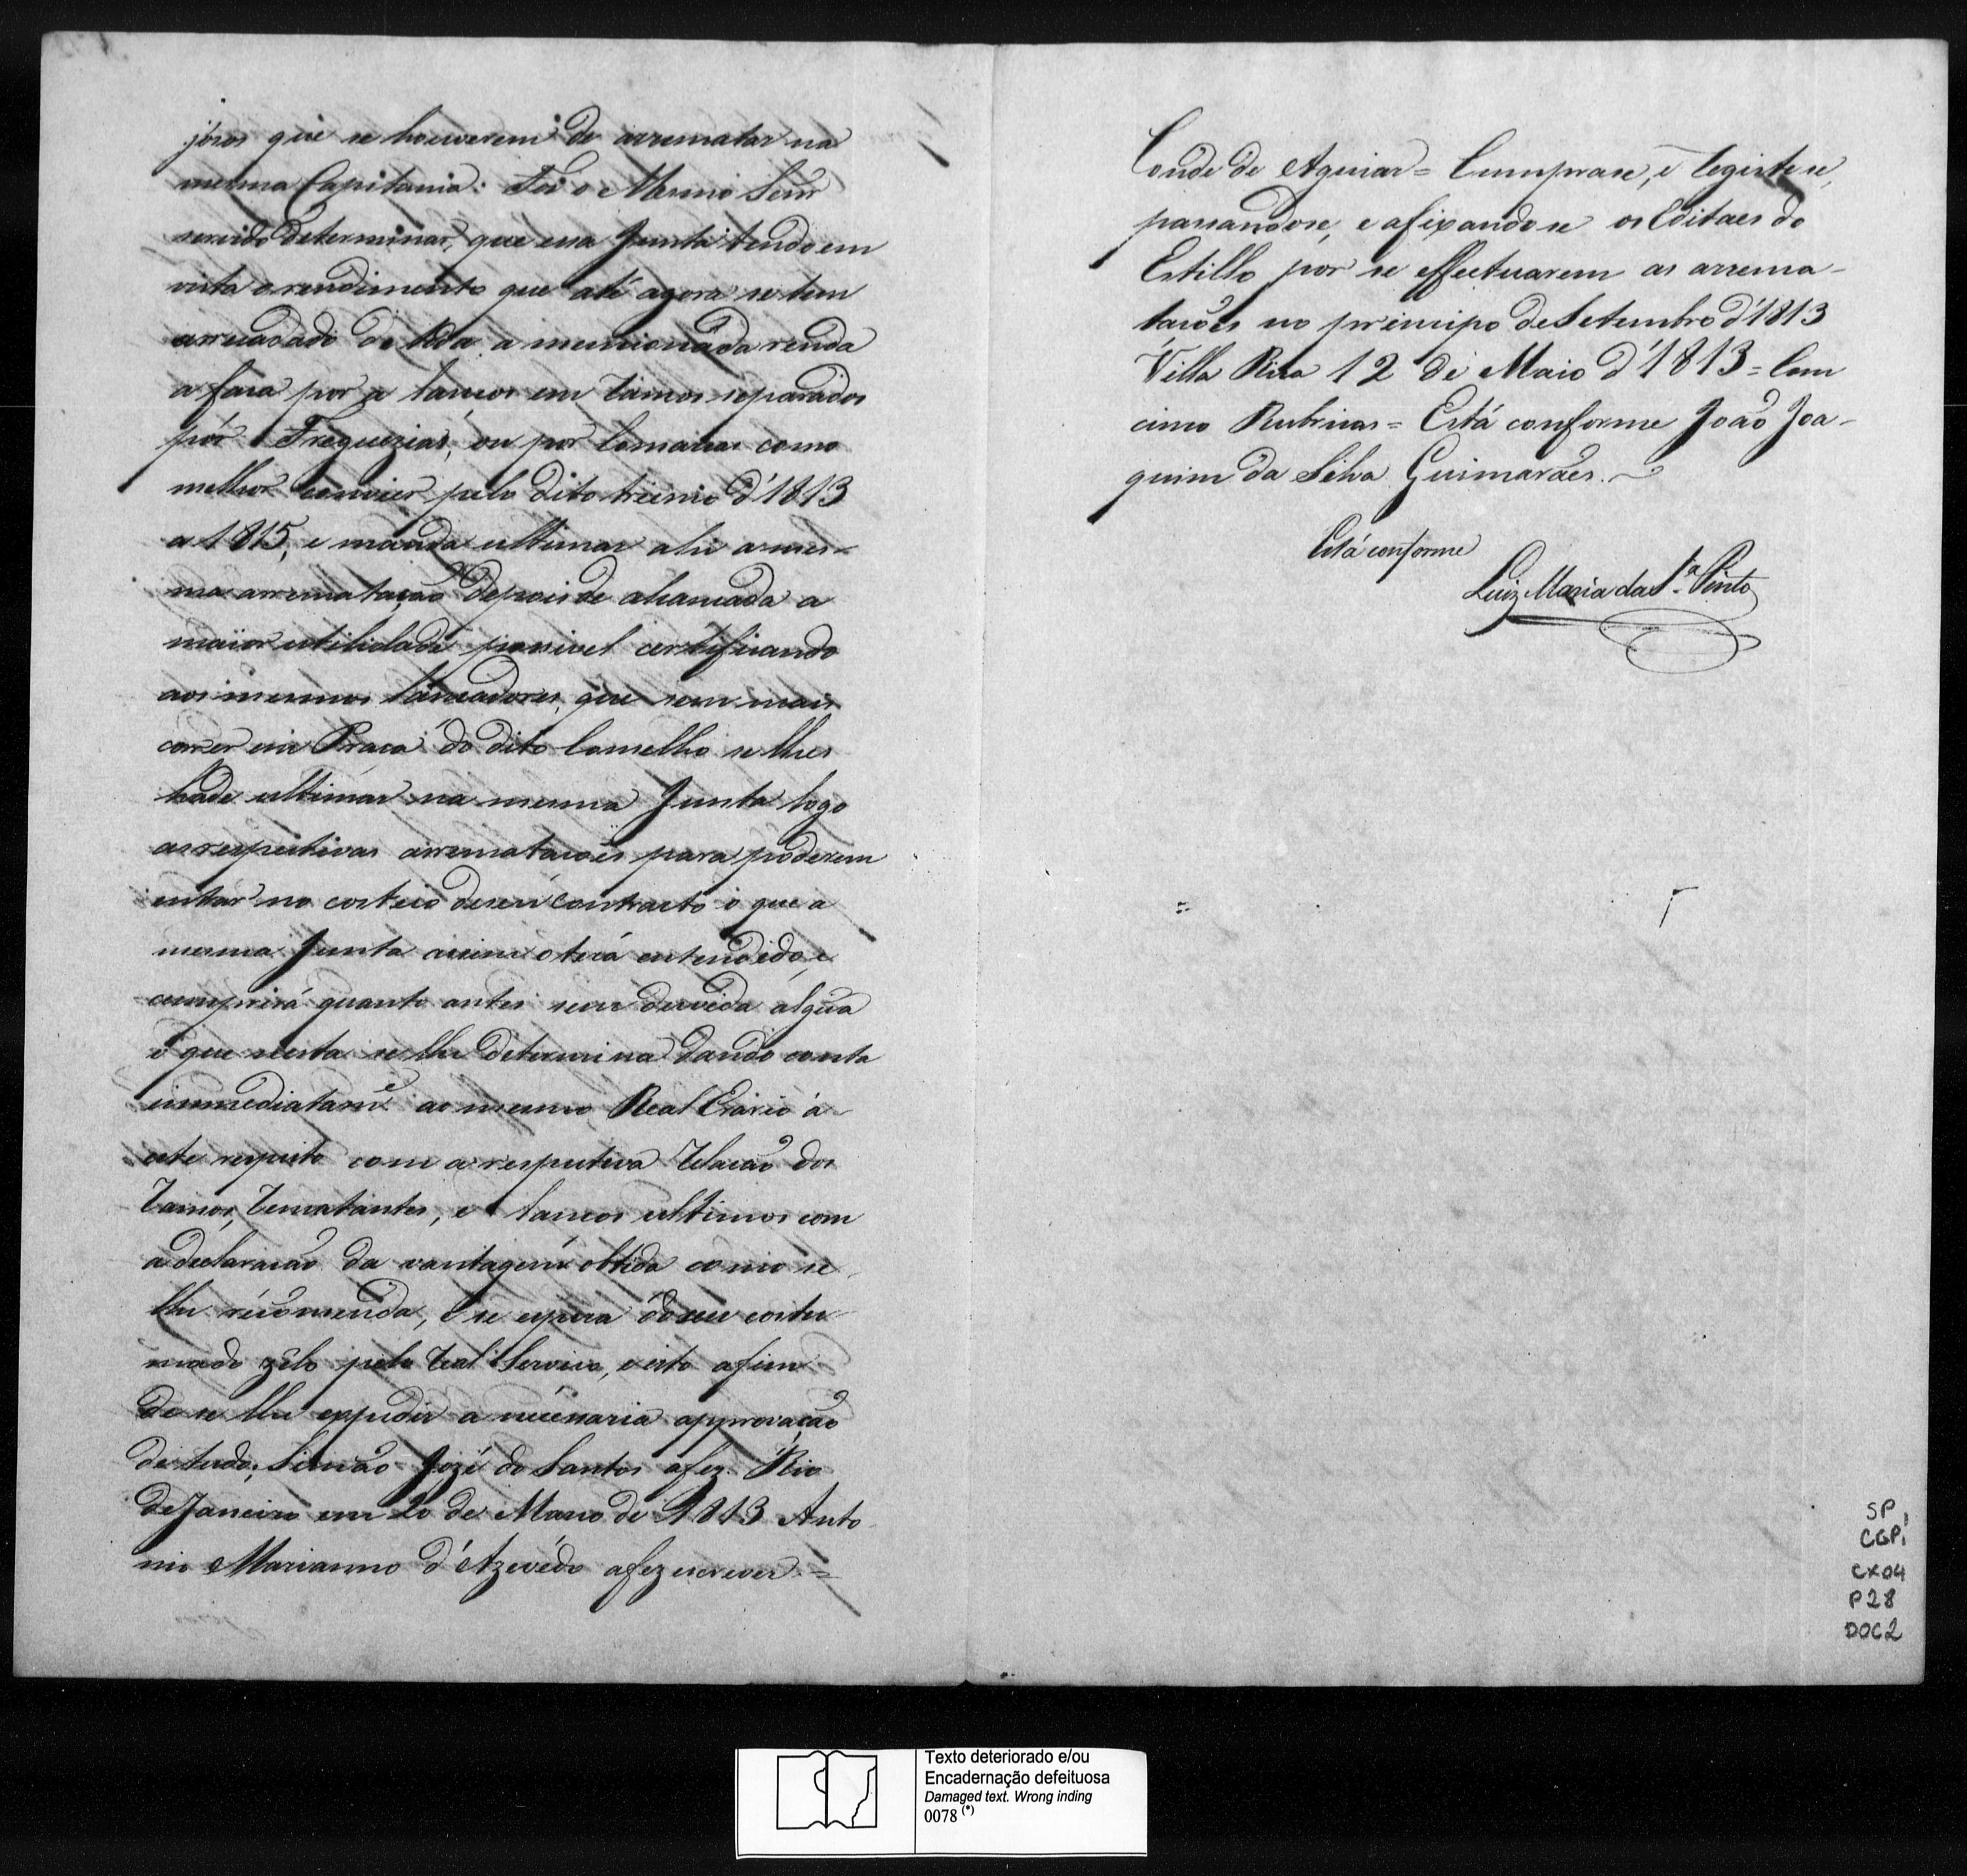 jores que se houverem de arrematar na
mesma Capitania: Foi o Mesmo Senr
servido determinar, que essa Junta tendo em
vista o rendimento que até agora se tem
arrecadado de toda a mencionada renda
a fara por a lanços em Ramos separados
pór Freguezias, ou por Comarcas como
melhor convier pelo dito triennio d'1813
a 1815, e manda ultimar ahi a mes-
ma arrematação depois de alcançada a
maior utilidade possivel certificando
aos mesmos lançadores, que sem mais
correr em Praça do dito Conselho se lhes
hade ultimar na mesma Junta logo
as respectivas arremataçoẽs para poderem
entrar no costeio de seu contracto o que a
mesma Junta assim o terá entendido, e
cumprirá quanto antes sem duvida algũa
o que nesta se lhe determina dando conta
immediatamẽ ao mesmo Real Erario á
este respeito com a respectiva Relação dos
Ramos, Rematantes, e lanços ultimos com
a declaração da vantagem obtida como se
lhe recomenda, e se espera do seu costu-
mado zêlo pelo Real Serviço, e isto afim
de se lhe expedir a necessaria approvação
de tudo; Simão Jozé do Santos a fez. Rio
de Janeiro em 20 de Março de 1813 Anto
nio Marianno d'Azevêdo a fez escrever. =
Conde de Aguiar = Cumprase, e Registese,
passandose, e afixandose os Editaes do
Estillo por se effectuarem as arrema-
tacoẽs no principo de Setembro d'1813
Villa Rica 12 de Maio d'1813 = Com
cinco Rubricas = Está conforme João Joa-
quim da Silva Guimarães.
Está conforme
Luiz Maria da Sª Pinto
SP
CGP1
CX04
P28
DOC2
Texto deteriorado e/ou
Encadernação defeituosa
Damaged text. Wrong inding
0078 (*)